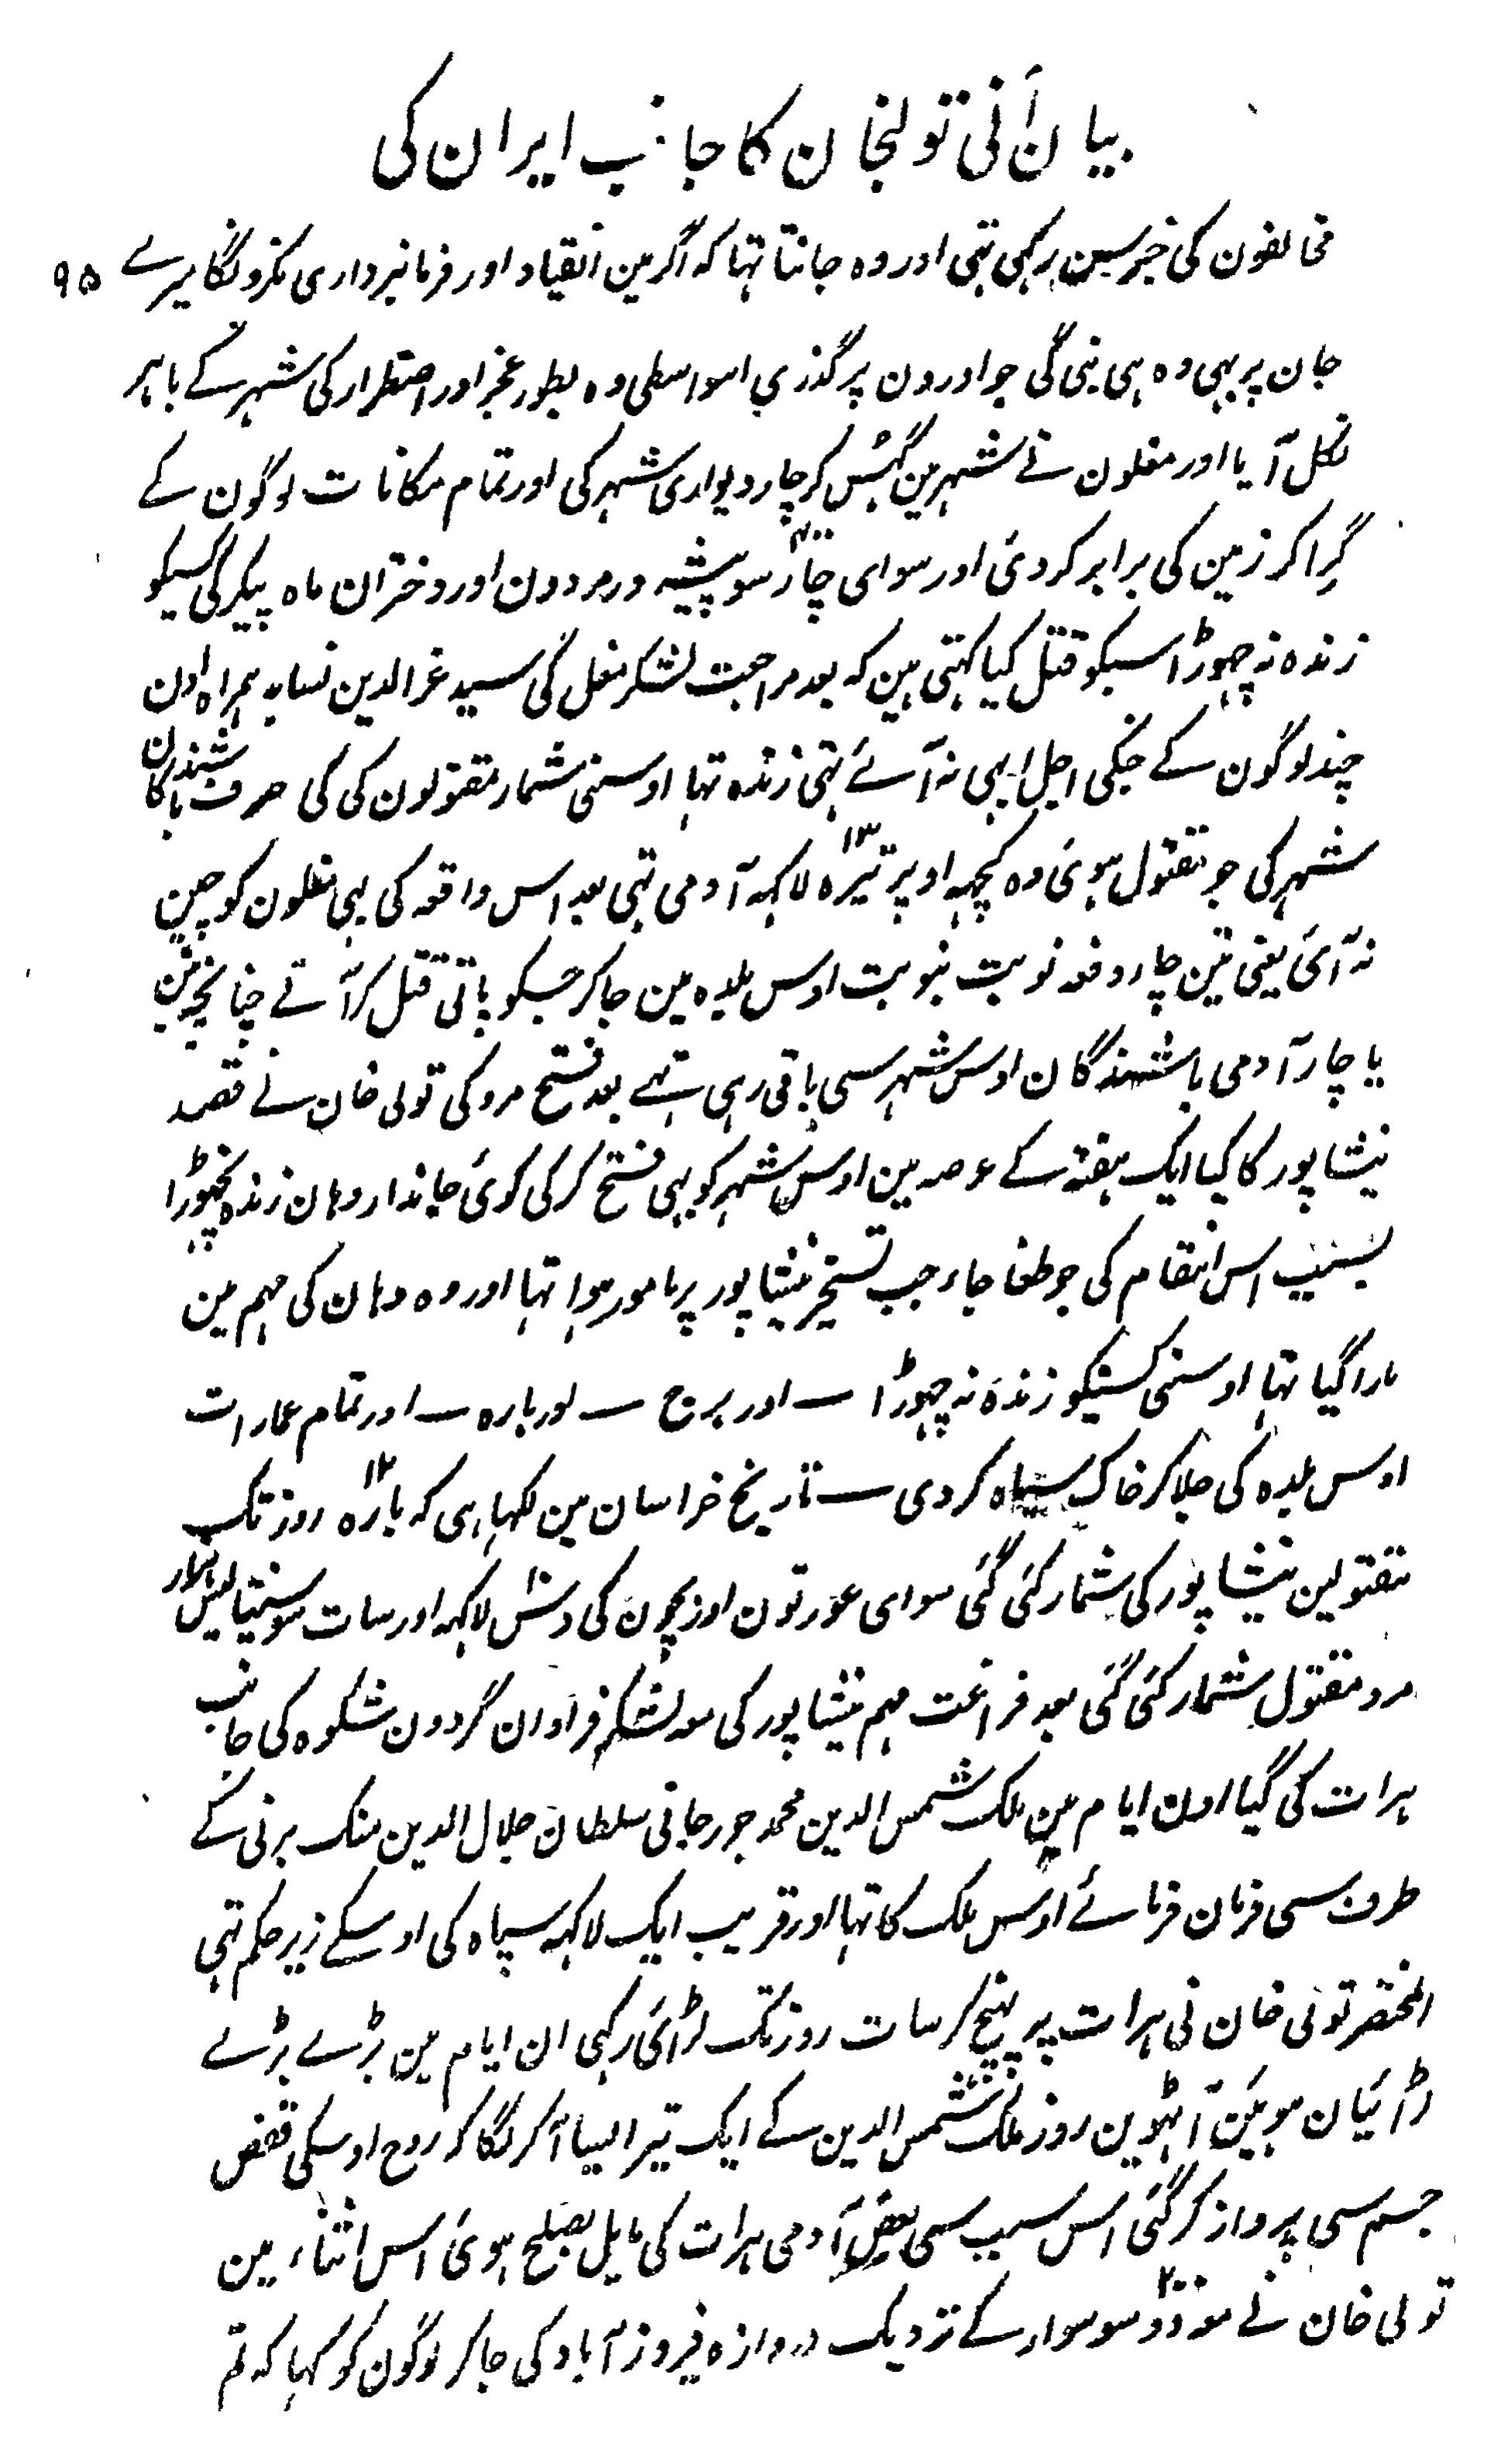 بیان آنی تولیخان کا جانب ایران کی
مخالفون کی خبر سن رکہی تہی اور وہ جانتا تہا کہ اگر مین انقیاد اور فرمانبرداری نکرونگا میرے ۹۵
جان پر بہی وہ ہی بنی گی جو اورون پر گذری اسواسطی وہ بطور عجز اور اضطرار کی شہر کے باہر
نکل آیا اور مغلون نے شہر مین گہُس کر چار دیواری شہر کی اور تمام مکانات لوگون کے
گِرا کر زمین کی برابر کر دیٔ اور سوای چار ۴۰۰ سو پیشیہ ور مردون اور دختران ماہ پیکر کی کسیکو
زندہ نہ چہوڑا سبکو قتل کیا کہتی ہین کہ بعد مراجبت لشکر مغل کی سید عزالدین نسابہ ہمراہ اون
چند لوگون کے جنکی اجل ابہی نہ آئے تہی زندہ تہا اوسنی شمار مقتولون کی کی صرف باشندگان
شہر کی جو مقتول ہویٔ وہ کچہہ اوپر تیرہ ۱۳ لاکہہ آدمی تہی بعد اس واقعہ کی بہی مغلون کو چین
نہ آیٔ یعنی تین چار دفعہ نوبت بنوبت اوس بلدہ مین جا کر جسکو پاتی قتل کر آتے چنانچہ تین
یا چار آدمی باشندگان اوس شہر سی باقی رہی تہے بعد فتح مرو کی تولی خان نے قصد
نیشاپور کا کیا ایک ہفتہ کے عرصہ مین اوس شہر کو بہی فتح کر کی کویٔ جاندار وہان زندہ نچہوڑا
بسبب اس انتقام کی جو طغاجار جب تسخیر نیشاپور پر مامور ہوا تہا اور وہ وہان کی مہم مین
مارا گیا تہا اوسنی کسیکو زندہ نہ چہوڑا ۔ اور برج ۔ اور بارہ ۔ اور تمام عمارات
اوس بلدہ کی جلا کر خاک سیاہ کر دی ۔ تاریخ خراسان مین لکہا ہی کہ بارہ ۱۲ روز تک
مقتولین نیشاپور کی شمار کئی گئی سوای عورتون اور بچون کی دس لاکہہ اور سات سو سنتیالیس ہزار
مرد مقتول شمار کئی گئی بعد فراغت مہم نیشاپور کی معہ لشکر فراوان گردون شکوہ کی جانب
ہرات کی گیا اون ایام مین ملک شمس الدین محمد جورجانی سلطان جلال الدین منک برنی کے
طرف سی فرمان فرمائے اوس ملک کا تہا اور قریب ایک لاکہہ سپاہ کی اوسکے زیر حکم تہی
المختصر تولی خان نی ہرات پر پہنچ کر سات روز تک لڑائی رکہی ان ایام مین بڑے بڑے
لڑائیان ہوئین آٹہوین روز ملک شمس الدین کے ایک تیر ایسا آکر لگا کہ روح اوسکی قفص
جسم سی پرواز کر گئی اس سبب سی بعض آدمی ہرات کی مایل بصلح ہویٔ اس اثناء مین
تولی خان نے معہ دو ۲۰۰ سو سوار کے نزدیک دروازہ فیروز آباد کی جا کر لوگون کو کہا کہ تم